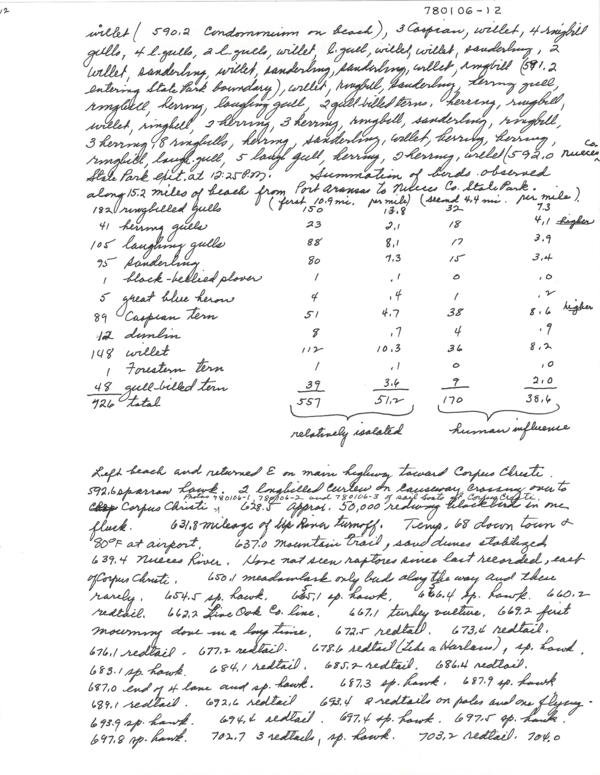 12
780106-12
willet ( 590.2 Condomonium on beach), 3 Caspian, willet, 4 ringbill
gulls, 4 l. gulls, 2 l. gulls, willet, l. gull, willet, willet, sanderling, 2
willet, sanderling, willet, sanderling, sanderling, willet, ringbill (591.2
entering State Park boundary), willet, ringbill, sanderling, herring gull,
ringbill, herring, laughing gull, 2 gull-billed terns, herring, ringbill,
willet, ringbill, 2 herring, 3 herring, ringbill, sanderling, ringbill,
3 herring, 8 ringbills, herring, sanderling, willet, herring, herring,
ringbill, laugh. gull, 5 laugh gull, herring, 2 herring, willet (592.0 Nueces Co.
State Park exit at 12:25 P.M. Summation of birds observed
along 15.2 miles of beach from Port Aransas to Nueces Co. State Park.
(first 10.9 mi. per mile) (second 4.4 mi. per mile)
182 ringbilled gulls 150 13.8 32 7.3
41 herring gulls 23 2.1 18 4.1 higher
105 laughing gulls 88 8.1 17 3.9
95 sanderling 80 7.3 15 3.4
1 black-bellied plover 1 .1 0 .0
5 great blue heron 4 .4 1 .2
89 Caspian tern 51 4.7 38 8.6 higher
12 dunlin 8 .7 4 .9
148 willet 112 10.3 36 8.2
1 Foresters tern 1 .1 0 .0
48 gull-billed tern 39 3.6 9 2.0
726 total 557 51.2 170 38.6
relatively isolated human influence
Left beach and returned E on main highway toward Corpus Christi.
592.6 sparrow hawk. 2 longbilled curlew on causeway crossing over to
Photos 780106-1, 780106-2 and 780106-3 of sail boats at Corpus Christi.
Corpus Christi. 628.5 approx. 50,000 redwing blackbird in one
flock. 631.8 mileage of Up River turnoff. Temp. 68 down town &
80°F at airport. 637.0 Mountain Trail, sand dunes stabilized
639.4 Nueces River. Have not seen raptores since last recorded, east
of Corpus Christi. 650.1 meadowlark only bird along the way and these
rarely. 654.5 sp. hawk. 655.1 sp. hawk. 656.4 sp. hawk. 660.2
redtail. 662.2 Live Oak Co. line. 667.1 turkey vulture, 669.2 first
mourning dove in a long time, 672.5 redtail. 673.6 redtail.
676.1 redtail. 677.2 redtail. 678.6 redtail (like a Harlans), sp. hawk.
683.1 sp. hawk. 684.1 redtail. 685.2 redtail. 686.4 redtail.
687.0 end of 4 lane and sp. hawk. 687.3 sp. hawk. 687.9 sp. hawk
689.1 redtail. 692.6 redtail 693.4 2 redtails on poles and one flying.
693.9 sp. hawk. 694.6 redtail. 697.4 sp. hawk. 697.5 sp. hawk.
697.8 sp. hawk. 702.7 3 redtails, sp. hawk. 703.2 redtail. 704.0